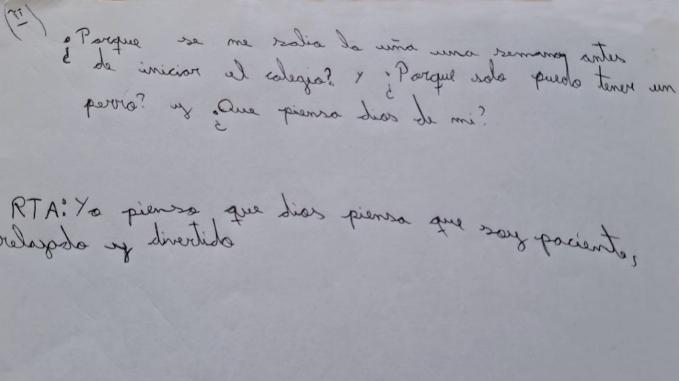 ¿Porque se me salia la uña una semana antes
de iniciar el colegio? y ¿Porque solo puedo tener un
perro? y ¿Que piensa dios de mi?
RTA: Yo pienso que dios piensa que soy paciente,
relajado y divertido